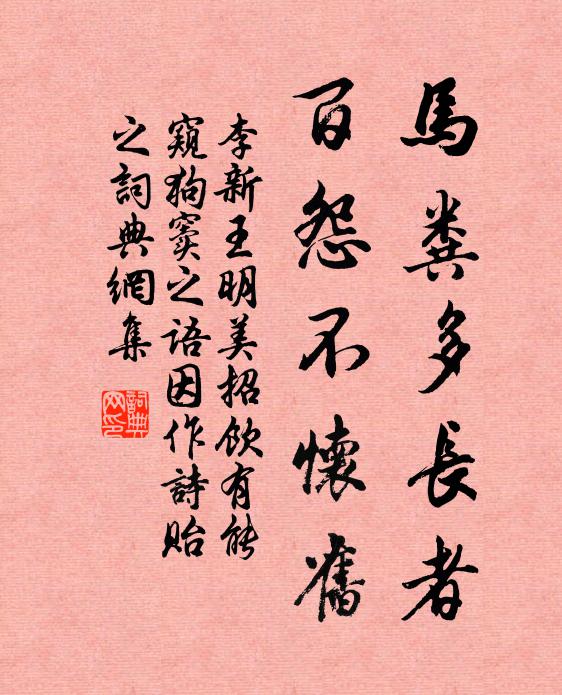 馬糞多長者
百怨不懷舊
李新王明美招飲有能
窺狗竇之語因作詩貽
之詞典網集
詞典
网印